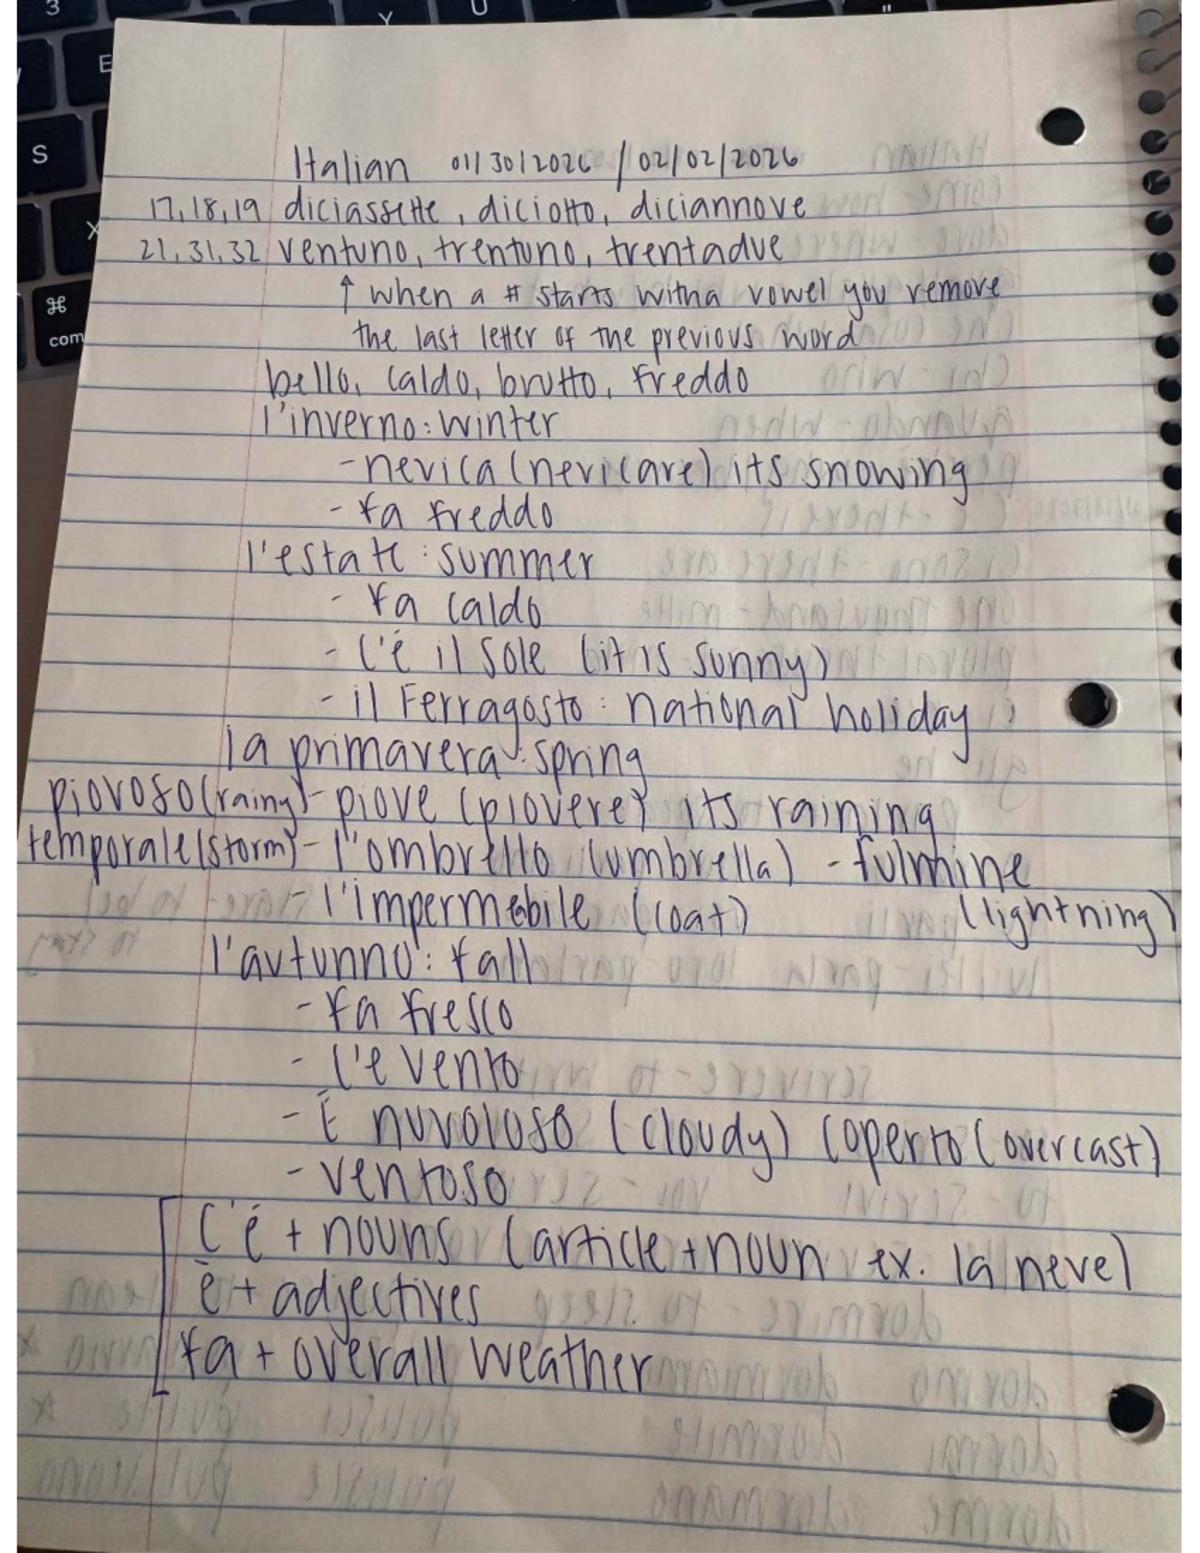 Italian 01/30/2026 / 02/02/2026
17,18,19 diciassette, diciotto, diciannove
21,31,32 ventuno, trentuno, trentadue
↑ when a # starts with a vowel you remove
the last letter of the previous word
bello, caldo, brutto, freddo
l'inverno: winter
- nevica (nevicare) its snowing
- fa freddo
l'estate: summer
- fa caldo
- c'é il sole (it is sunny)
- il Ferragosto: national holiday
la primavera: spring
piovoso (rainy) - piove (piovere) its raining
temporale (storm) - l'ombrello (umbrella) - fulmine
- l'impermebile (coat) (lightning)
l'autunno: fall
- fa fresco
- c'e vento
- É nuvoloso (cloudy) coperto (overcast)
- ventoso
C'é + nouns (article + noun ex. la neve)
è + adjectives
fa + overall weather